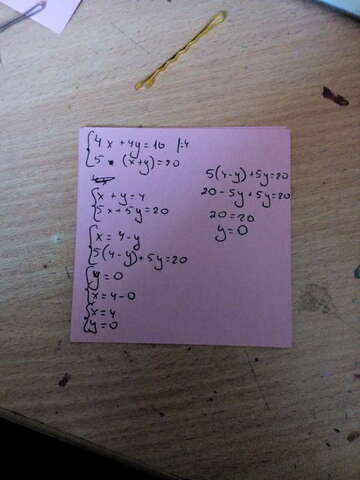 4x + 4y = 16 |:4
5 • (x+y) = 20
x + y = 4
5x + 5y = 20
x = 4 - y
5(4 - y) + 5y = 20
y = 0
x = 4 - 0
x = 4
y = 0
5(4-y) + 5y = 20
20 - 5y + 5y = 20
20 = 20
y = 0